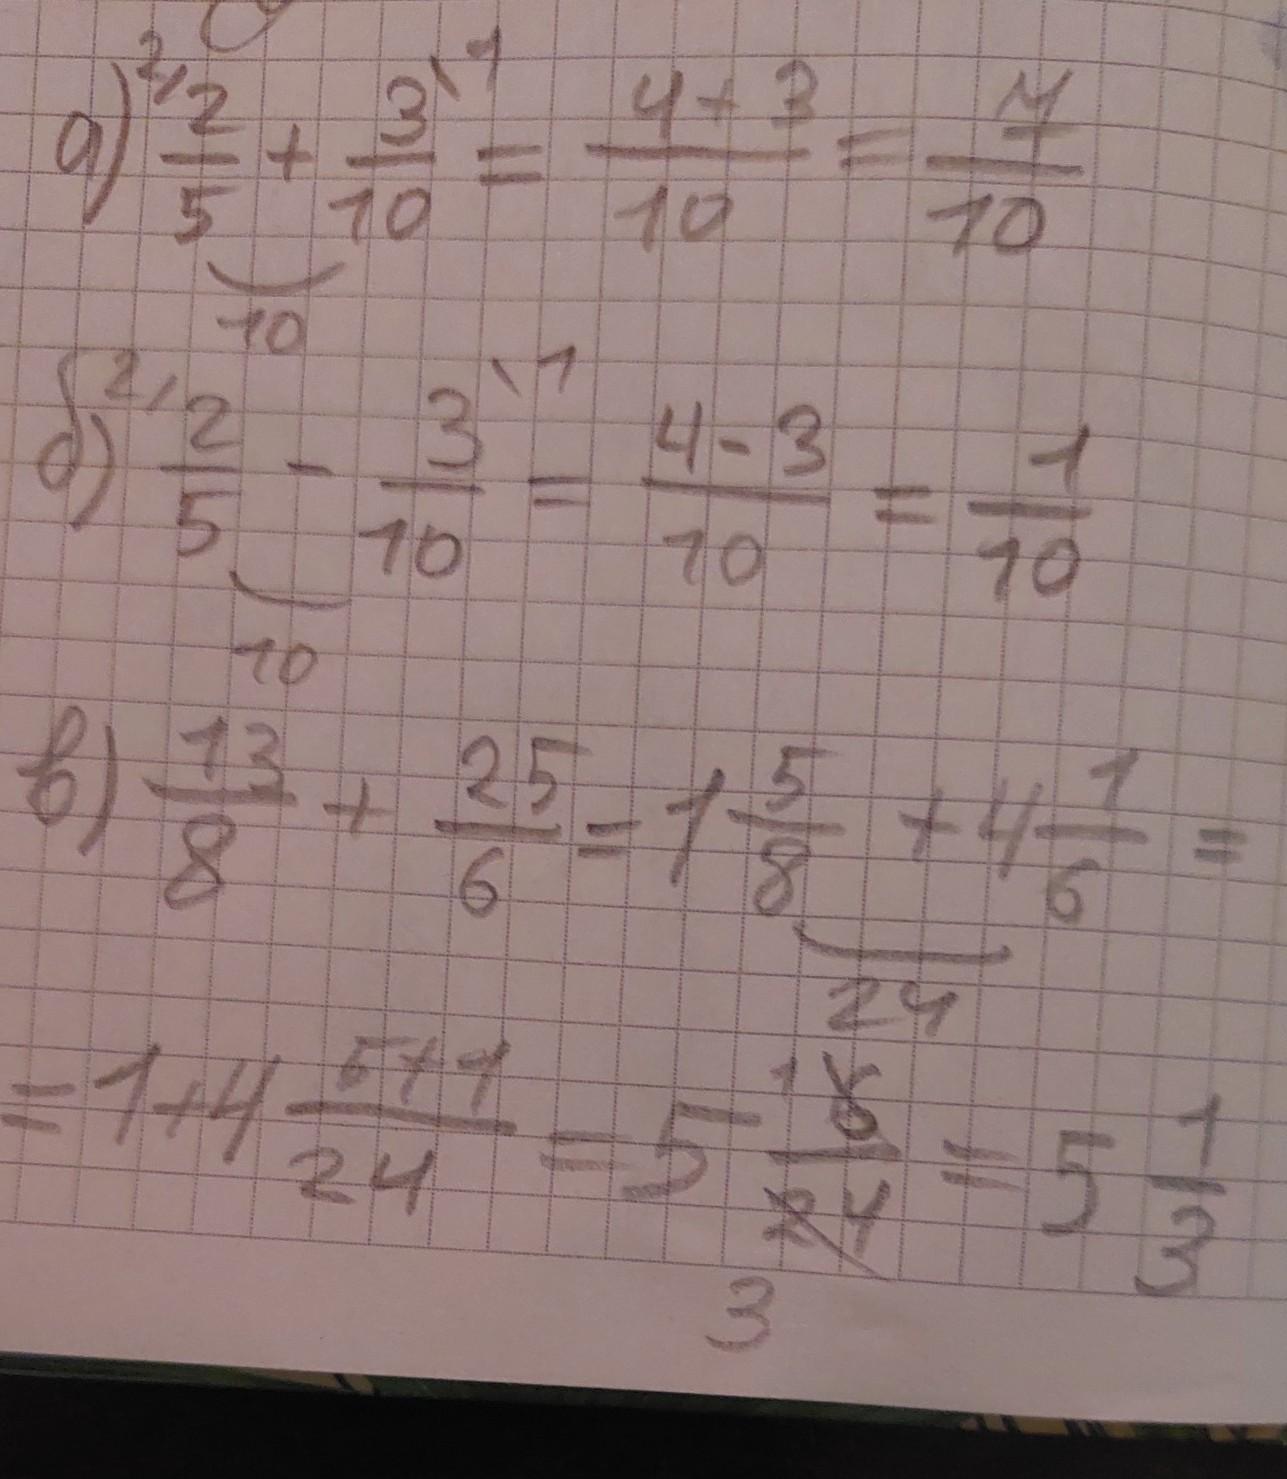 а) ²/ 2/5 + 3/10 \1 = 4+3/10 = 7/10
10
б) ²/ 2/5 - 3/10 \1 = 4-3/10 = 1/10
10
в) 13/8 + 25/6 = 1 5/8 + 4 1/6 =
24
= 1+4 5+1/24 = 5 6/24 = 5 1/3
3